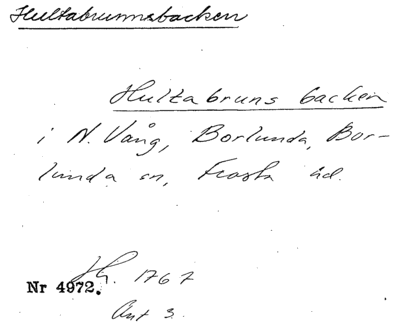 Hultabrunnsbacken
Hultabruns backen
i N. Vång, Borlunda, Bor-
lunda sn, Frosta hd.
Nr 4972. H. 1767
Ant 3.